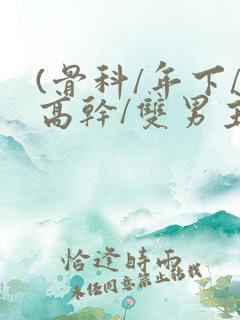 (骨科/年下/
高幹/雙男主
恰逢時雨
未經同意禁止轉載